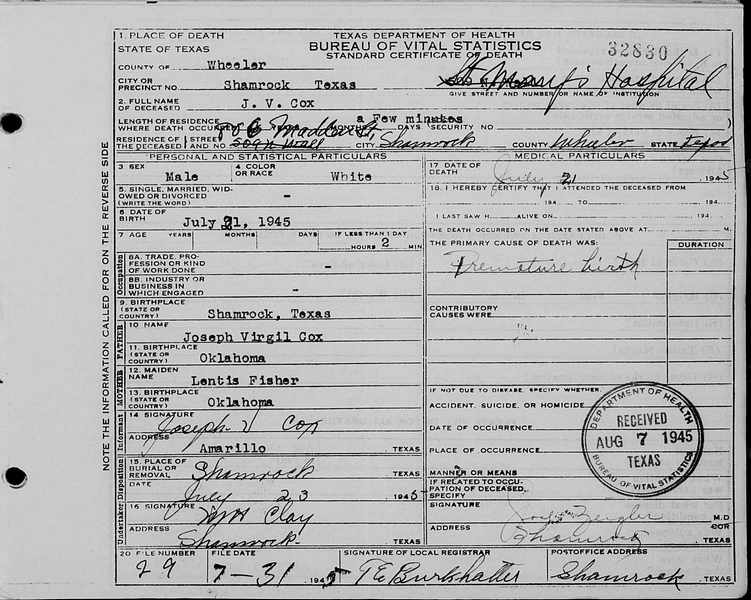 1. PLACE OF DEATH
STATE OF TEXAS
TEXAS DEPARTMENT OF HEALTH
BUREAU OF VITAL STATISTICS
STANDARD CERTIFICATE OF DEATH
32830
COUNTY OF Wheeler
CITY OR PRECINCT NO. Shamrock Texas
St. Mary's Hospital
GIVE STREET AND NUMBER OR NAME OF INSTITUTION
2. FULL NAME OF DECEASED J. V. Cox
LENGTH OF RESIDENCE WHERE DEATH OCCURRED a Few minutes MONTHS DAYS SECURITY NO
RESIDENCE OF THE DECEASED STREET AND NO. CITY Shamrock COUNTY Wheeler STATE
PERSONAL AND STATISTICAL PARTICULARS
3 SEX Male
4 COLOR OR RACE White
5. SINGLE, MARRIED, WIDOWED OR DIVORCED (WRITE THE WORD) -
6 DATE OF BIRTH July 21, 1945
7 AGE YEARS MONTHS DAYS IF LESS THAN 1 DAY HOURS 2 MIN
8A. TRADE, PROFESSION OR KIND OF WORK DONE -
8B. INDUSTRY OR BUSINESS IN WHICH ENGAGED -
Occupation
9 BIRTHPLACE (STATE OR COUNTRY) Shamrock, Texas
FATHER
10 NAME Joseph Virgil Cox
11. BIRTHPLACE (STATE OR COUNTRY) Oklahoma
MOTHER
12. MAIDEN NAME Lentis Fisher
13. BIRTHPLACE (STATE OR COUNTRY) Oklahoma
Informant
14 SIGNATURE Joseph V Cox
ADDRESS Amarillo TEXAS
Undertaker Disposition
15. PLACE OF BURIAL OR REMOVAL Shamrock TEXAS
DATE July 23 1945
16 SIGNATURE Clay
ADDRESS Shamrock TEXAS
MEDICAL PARTICULARS
17 DATE OF DEATH July 21 1945
18. I HEREBY CERTIFY THAT I ATTENDED THE DECEASED FROM
194 TO 194
I LAST SAW H ALIVE ON 194
THE DEATH OCCURRED ON THE DATE STATED ABOVE AT M.
THE PRIMARY CAUSE OF DEATH WAS: DURATION
Premature birth
CONTRIBUTORY CAUSES WERE
IF NOT DUE TO DISEASE, SPECIFY WHETHER
ACCIDENT, SUICIDE, OR HOMICIDE
DATE OF OCCURRENCE
PLACE OF OCCURRENCE
MANNER OR MEANS
IF RELATED TO OCCUPATION OF DECEASED, SPECIFY
SIGNATURE Zeigler M.D
ADDRESS Shamrock TEXAS
DEPARTMENT OF HEALTH
RECEIVED
AUG 7 1945
TEXAS
BUREAU OF VITAL STATISTICS
20 FILE NUMBER 29
FILE DATE 7-31 1945
SIGNATURE OF LOCAL REGISTRAR T E Burkhalter
POSTOFFICE ADDRESS Shamrock TEXAS
NOTE THE INFORMATION CALLED FOR ON THE REVERSE SIDE